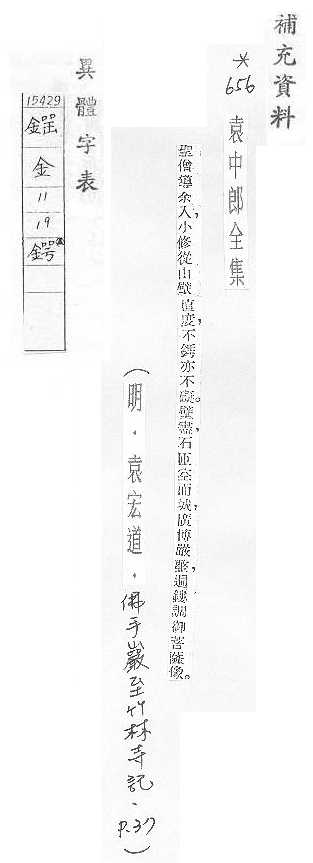 補充資料
*
656
袁中郎全集
聖僧導余入,小修從山壁直度,不鍔亦不礙。壁盡,石匝空而城,廣博嚴整,遍鏤調御菩薩像。
(明.袁宏道.佛手巖至竹林寺記.P.37)
異體字表
15429
金
11
19
鍔